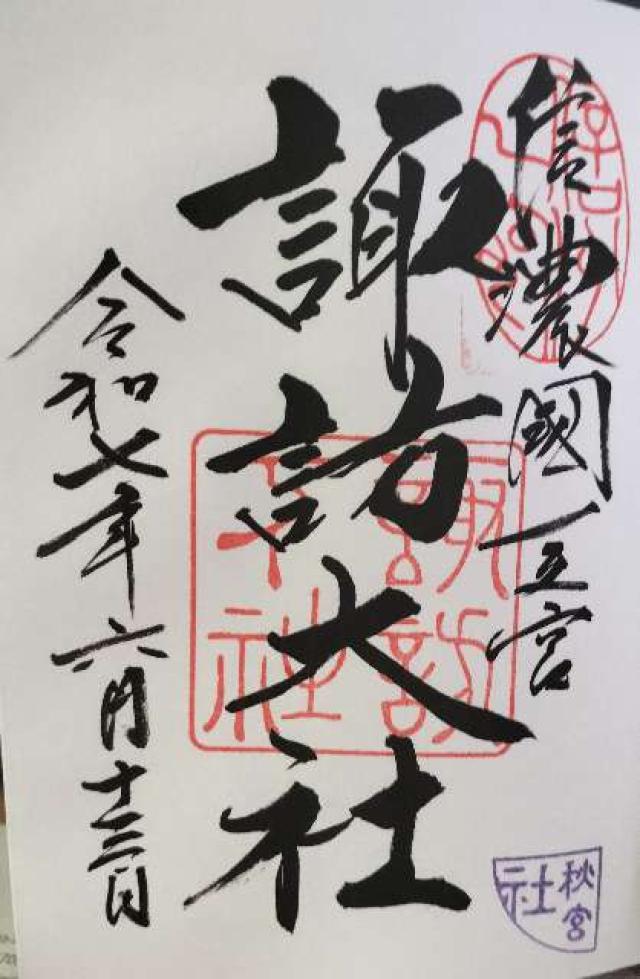 信濃國一之宮
諏訪大社
令和七年六月十三日
諏訪
大社
秋宮
社